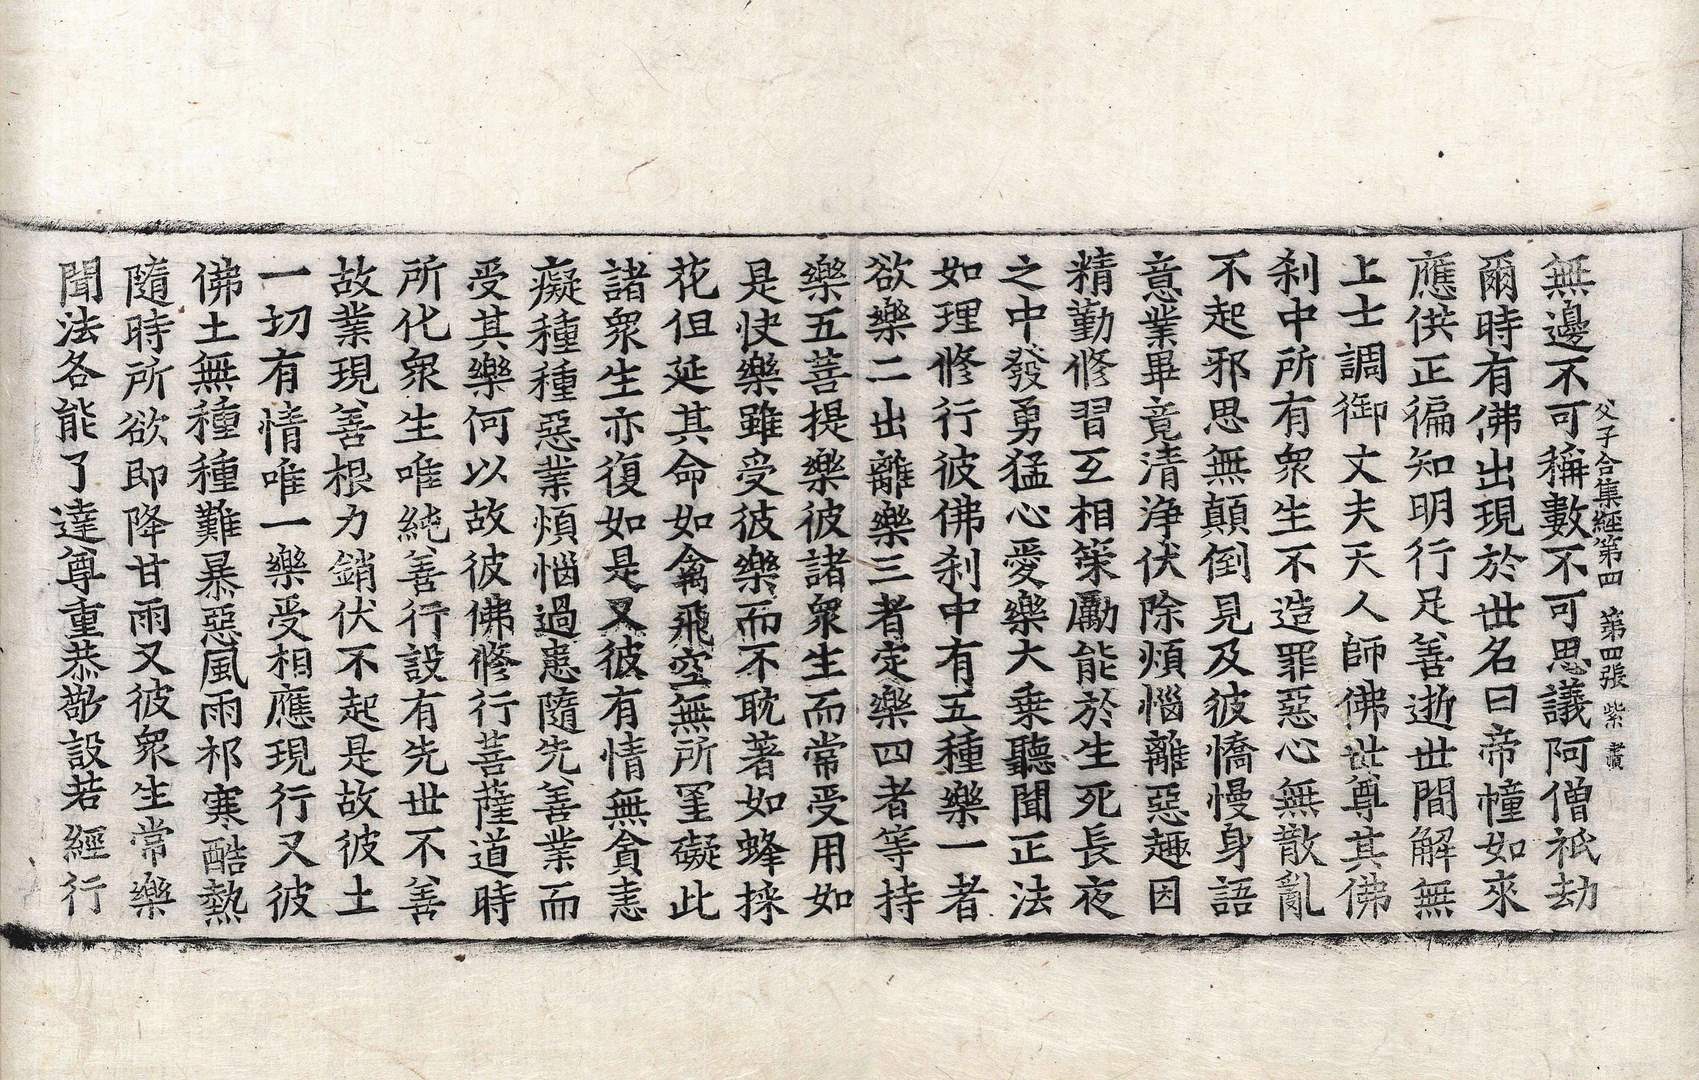 父子合集經第四　第四張　紫
無邊不可稱數不可思議阿僧祇劫
爾時有佛出現於世名曰帝幢如來
應供正徧知明行足善逝世間解無
上士調御丈夫天人師佛世尊其佛
刹中所有衆生不造罪惡心無散亂
不起邪思無顛倒見及彼憍慢身語
意業畢竟清淨伏除煩惱離惡趣因
精勤修習互相策勵能於生死長夜
之中發勇猛心愛樂大乗聽聞正法
如理修行彼佛刹中有五種樂一者
欲樂二出離樂三者定樂四者等持
樂五菩提樂彼諸衆生而常受用如
是快樂雖受彼樂而不耽著如蜂採
花但延其命如禽飛空無所罣礙此
諸衆生亦復如是又彼有情無貪恚
癡種種惡業煩惱過患隨先善業而
受其樂何以故彼佛修行菩薩道時
所化衆生唯純善行設有先世不善
故業現善根力銷伏不起是故彼土
一切有情唯一樂受相應現行又彼
佛土無種種難暴惡風雨祁寒酷熱
隨時所欲即降甘雨又彼衆生常樂
聞法各能了達尊重恭敬設若經行